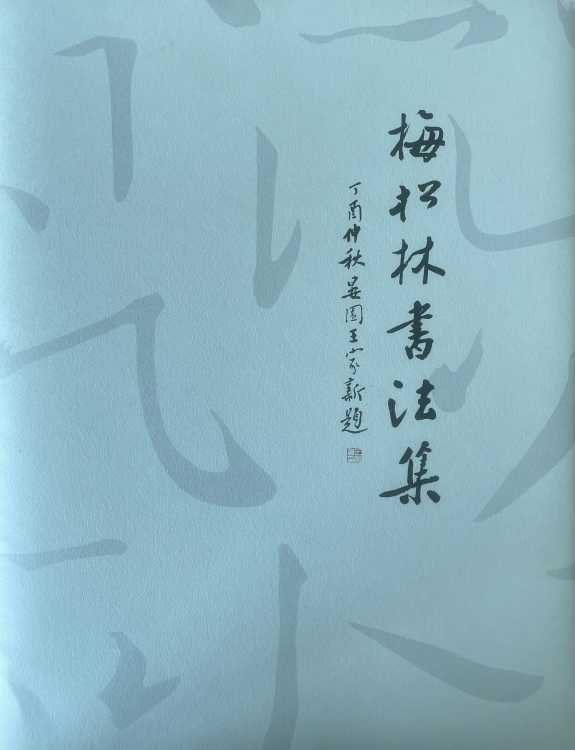 梅松林書法集
丁酉仲秋晏園王家新題